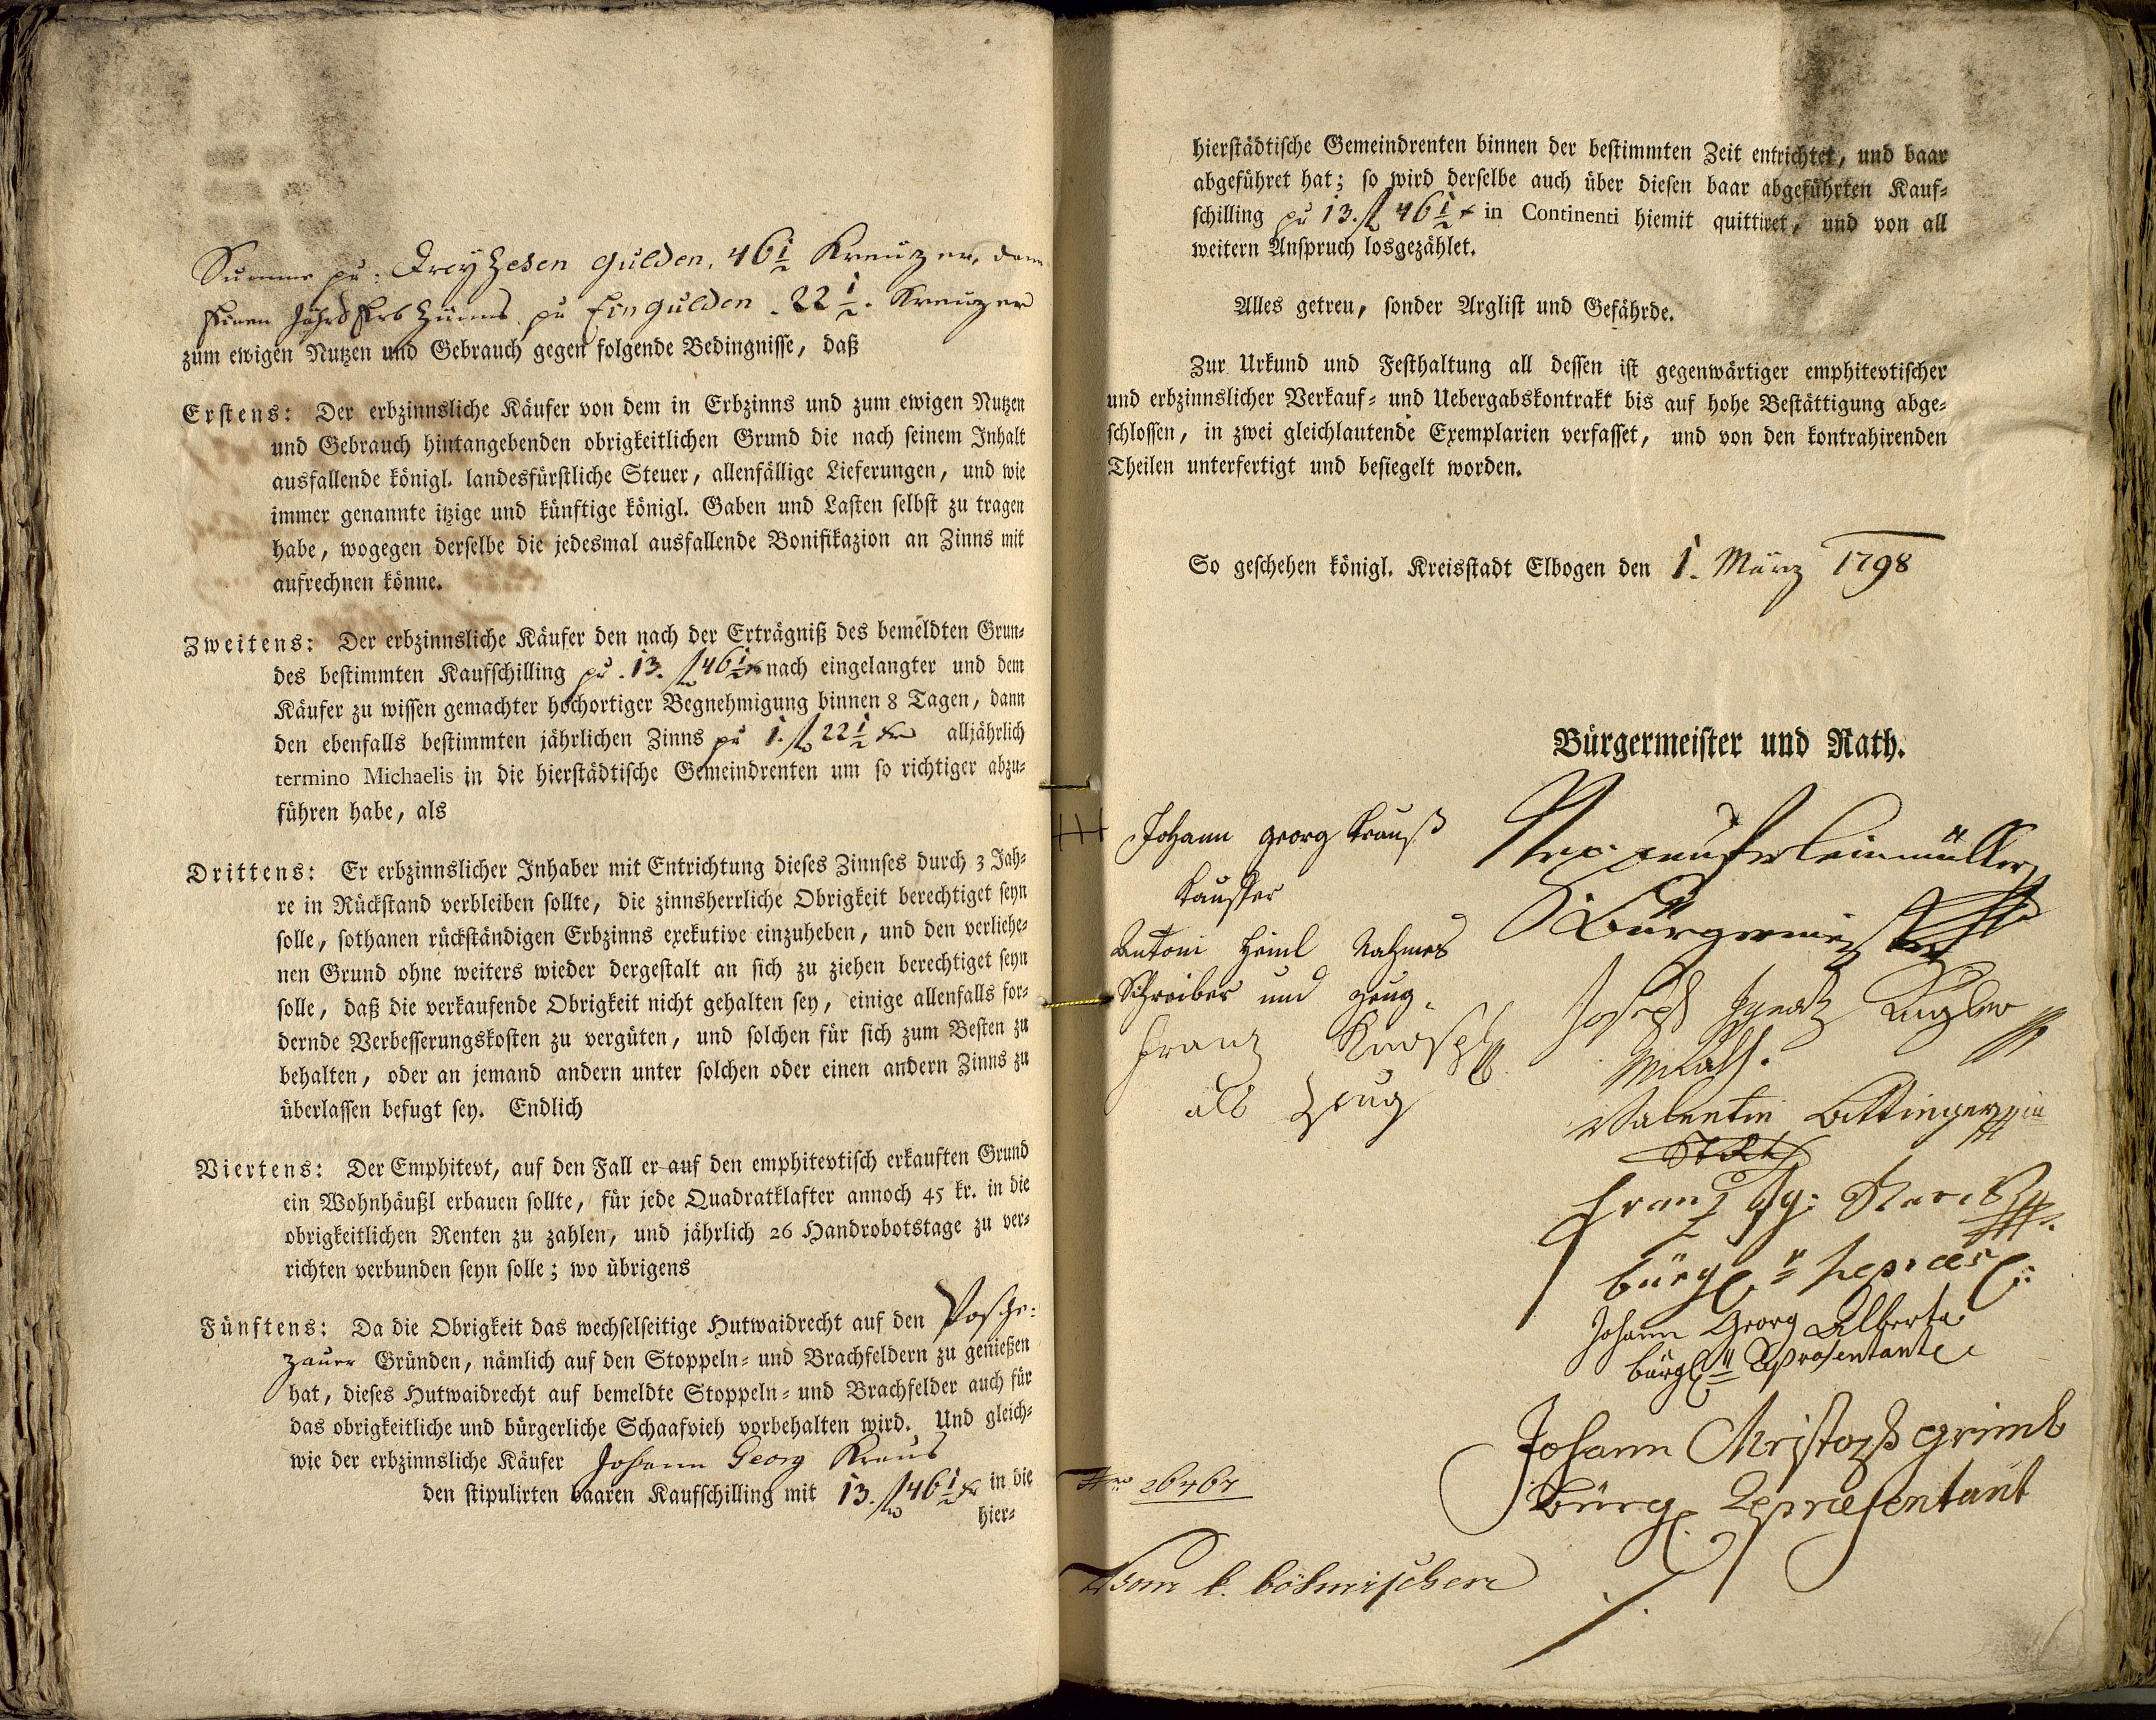 Summe pr: Dreyzehen Gulden, 46 1/2 Kreuzer, dann
Einen Jährl Erb Zünns pr Ein Gulden . 22 1/2 . Kreuzer
zum ewigen Nutzen und Gebrauch gegen folgende Bedingnisse, daß
Erstens: Der erbzinnsliche Käufer von dem in Erbzinns und zum ewigen Nutzen
und Gebrauch hintangebenden obrigkeitlichen Grund die nach seinem Inhalt
ausfallende königl. landesfürstliche Steuer, allenfällige Lieferungen, und wie
immer genannte itzige und künftige königl. Gaben und Lasten selbst zu tragen
habe, wogegen derselbe die jedesmal ausfallende Bonifikazion an Zinns mit
aufrechnen könne.
Zweitens: Der erbzinnsliche Käufer den nach der Erträgniß des bemeldten Grun-
des bestimmten Kaufschilling pr. 13. fl 46 1/2 x nach eingelangter und dem
Käufer zu wissen gemachter hochortiger Begnehmigung binnen 8 Tagen, dann
den ebenfalls bestimmten jährlichen Zinns pr 1. fl 22 1/2 kr alljährlich
termino Michaelis in die hierstädtische Gemeindrenten um so richtiger abzu-
führen habe, als
Drittens: Er erbzinnslicher Inhaber mit Entrichtung dieses Zinnses durch 3 Jah-
re in Rückstand verbleiben sollte, die zinnsherrliche Obrigkeit berechtiget seyn
solle, sothanen rückständigen Erbzinns exekutive einzuheben, und den verliehe-
nen Grund ohne weiters wieder dergestalt an sich zu ziehen berechtiget seyn
solle, daß die verkaufende Obrigkeit nicht gehalten sey, einige allenfalls for-
dernde Verbesserungskosten zu vergüten, und solchen für sich zum Besten zu
behalten, oder an jemand andern unter solchen oder einen andern Zinns zu
überlassen befugt sey. Endlich
Viertens: Der Emphitevt, auf den Fall er auf den emphitevtisch erkauften Grund
ein Wohnhäußl erbauen sollte, für jede Quadratklafter annoch 45 kr. in die
obrigkeitlichen Renten zu zahlen, und jährlich 26 Handrobotstage zu ver-
richten verbunden seyn solle; wo übrigens
Fünftens: Da die Obrigkeit das wechselseitige Hutwaidrecht auf den Posche-
zauer Gründen, nämlich auf den Stoppeln- und Brachfeldern zu genießen
hat, dieses Hutwaidrecht auf bemeldte Stoppeln- und Brachfelder auch für
das obrigkeitliche und bürgerliche Schaafvieh vorbehalten wird. Und gleich-
wie der erbzinnsliche Käufer Johann Georg Kraus
den stipulirten baaren Kaufschilling mit 13. fl 46 1/2 kr in die
hier-
hierstädtische Gemeindrenten binnen der bestimmten Zeit entrichtet, und baar
abgeführet hat; so wird derselbe auch über diesen baar abgeführten Kauf-
schilling pr 13. fl 46 1/2 x in Continenti hiemit quittiret, und von all
weitern Anspruch losgezählet.
Alles getreu, sonder Arglist und Gefährde.
Zur Urkund und Festhaltung all dessen ist gegenwärtiger emphitevtischer
und erbzinnslicher Verkauf- und Uebergabskontrakt bis auf hohe Bestättigung abge-
schlossen, in zwei gleichlautende Exemplarien verfasset, und von den kontrahirenden
Theilen unterfertigt und besiegelt worden.
So geschehen königl. Kreisstadt Elbogen den 1. März 1798
Bürgermeister und Rath.
+++ Johann Georg Krauß
Kauffer
Antoni Heinl Nahmes
Schreiber und Zeug.
Franz
als Zeug
Bürgermeister
Joseph Ignatz
Valentin
Franz Ig:
bürgl r repraes
Johann Georg Alberta
bürgl r Representante
Johann Christoph Grimb
Bürgl. Repraesentant
Nro 26464
Vom k. böhmischen